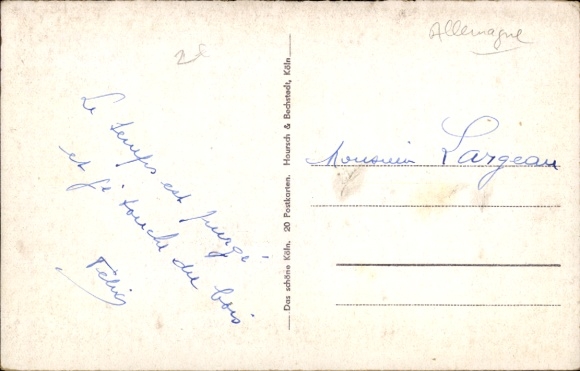 Allemagne
Le temps est purgé
et je touche du bois
Félix
Das schöne Köln. 20 Postkarten. Hoursch & Bechstedt, Köln
Monsieur Largeau